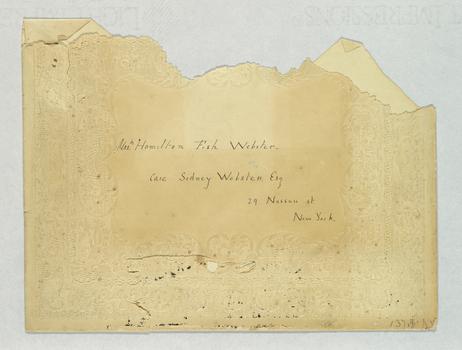 Hamilton Fish Webster.
Care Sidney Webster Esq
29 Nassau st
New York.